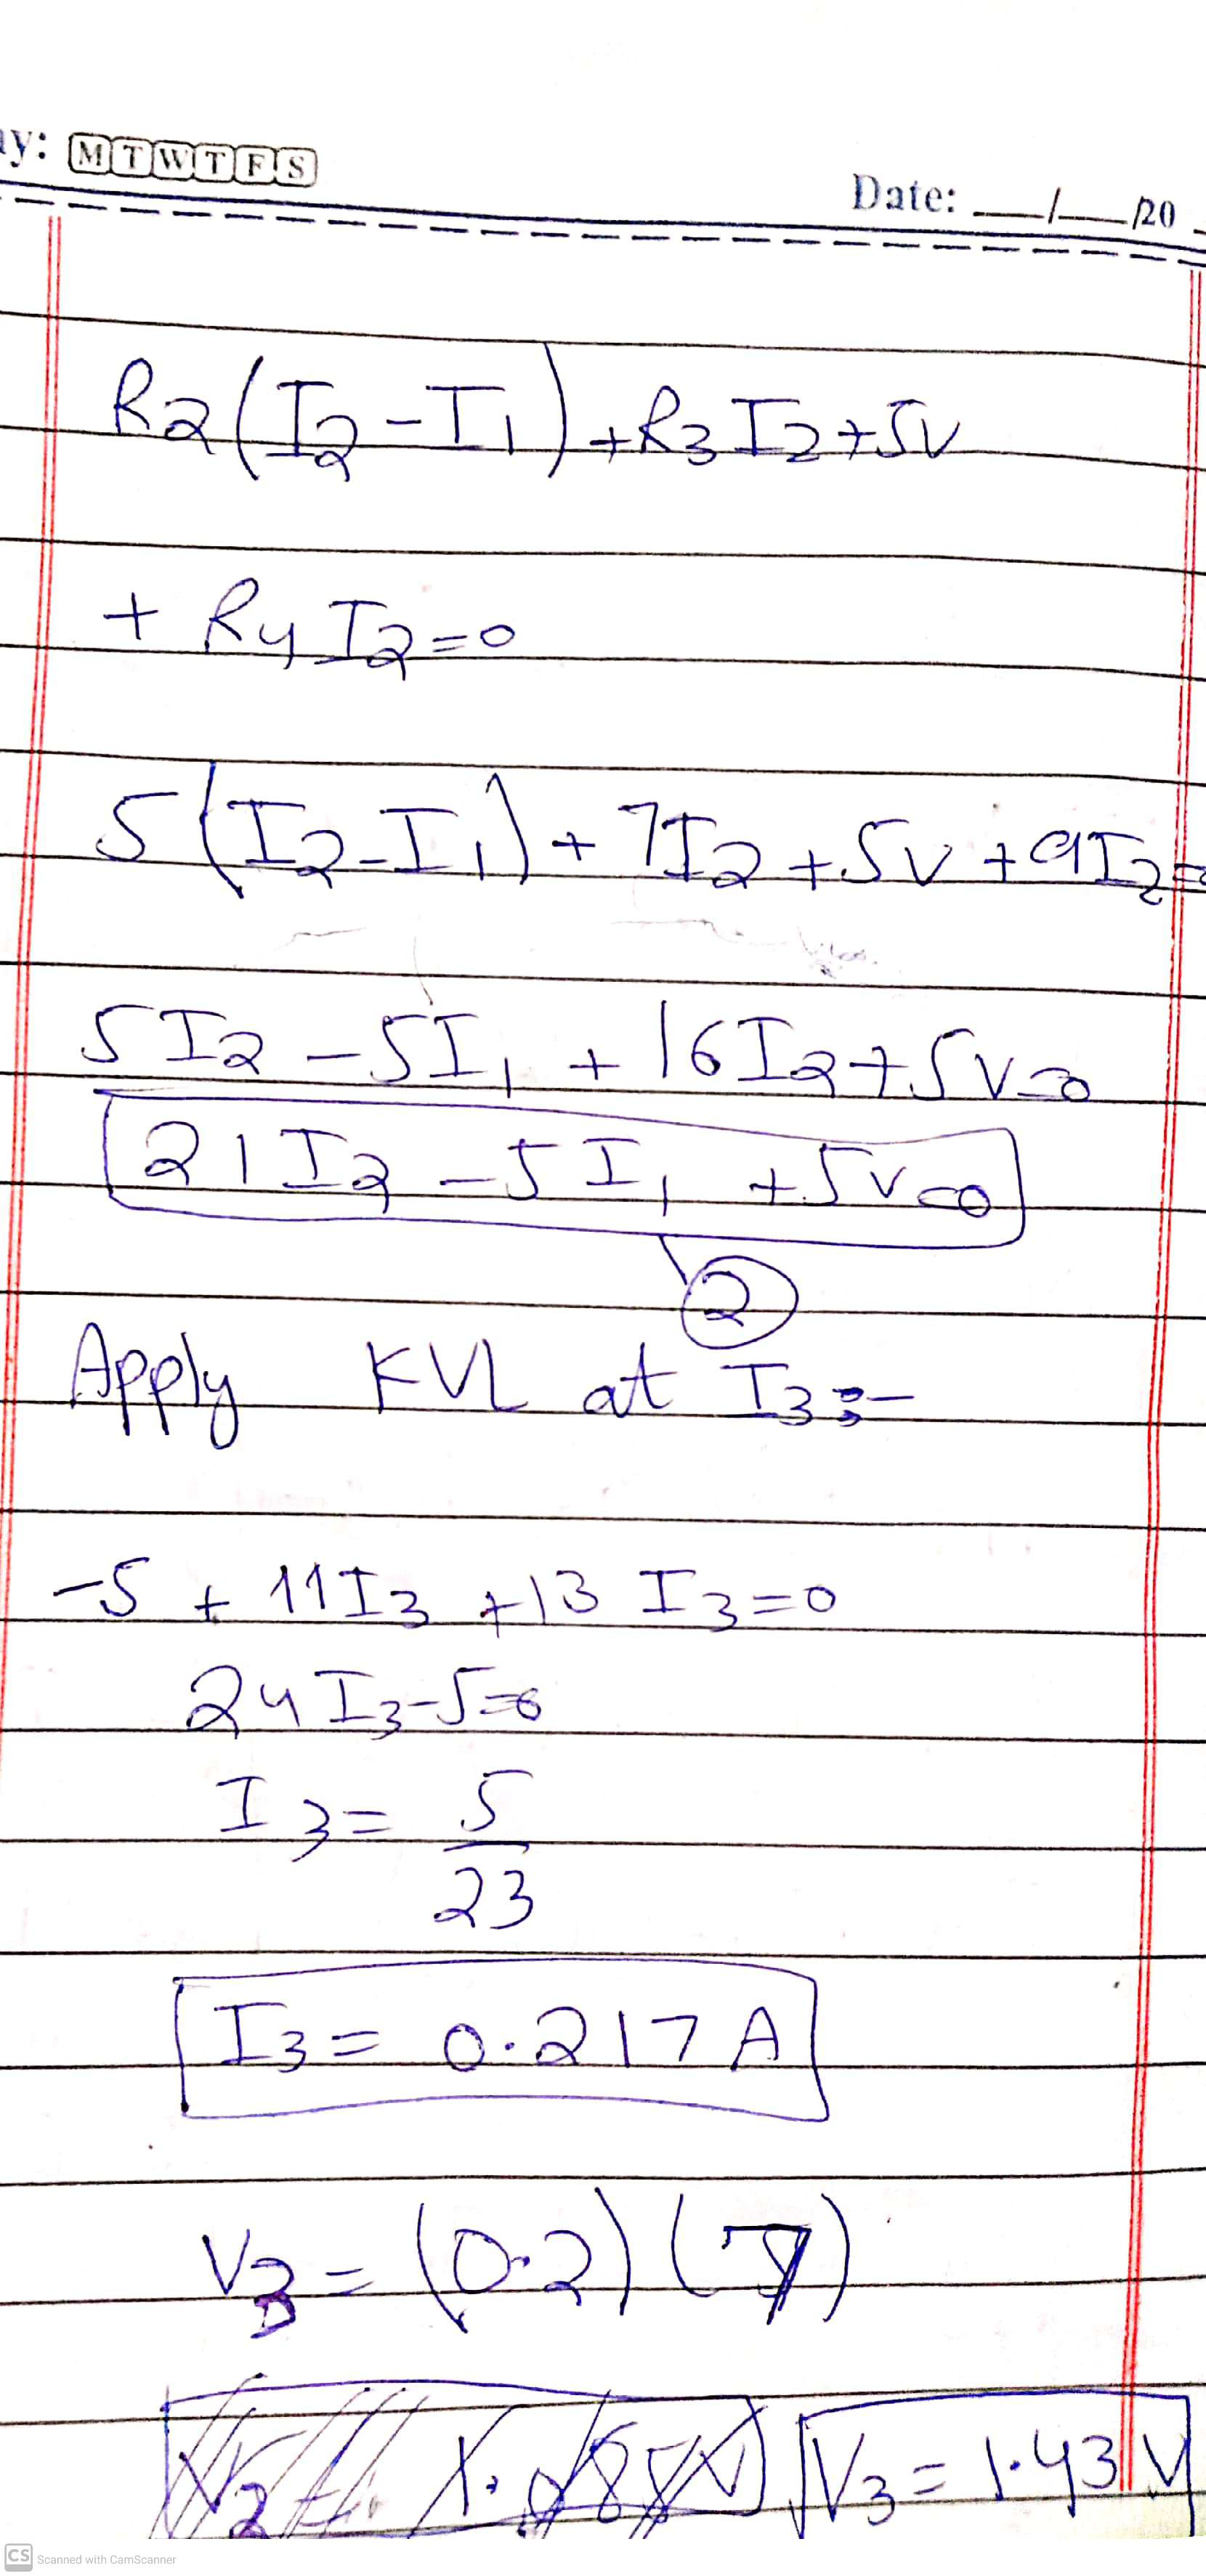 ay: M T W T F S
Date: __/__/20
R2(I2-I1)+R3I2+5V
+ R4I2=0
5(I2-I1)+7I2+5V+9I2=
5I2-5I1+16I2+5V=0
21I2-5I1+5V=0
2
Apply KVL at I3:-
-5+11I3+13I3=0
24I3-5=0
I3=5
23
I3=0.217A
V3=(0.2)(7)
V3=1.43V
CS Scanned with CamScanner